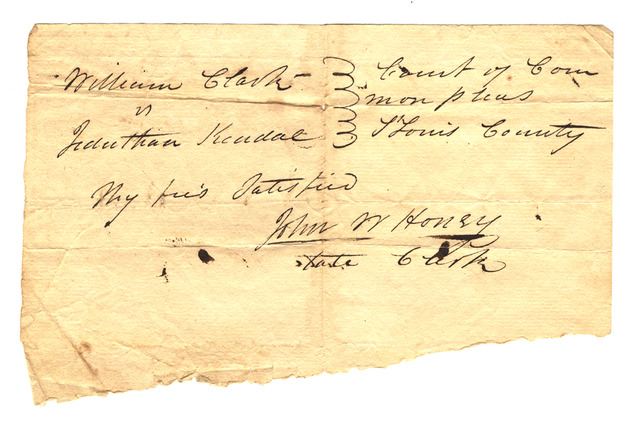 William Clark Court of Com
vs mon pleas
Jeduthan Kendal St Louis County
My fees Satisfied
John W Honey
late Clerk